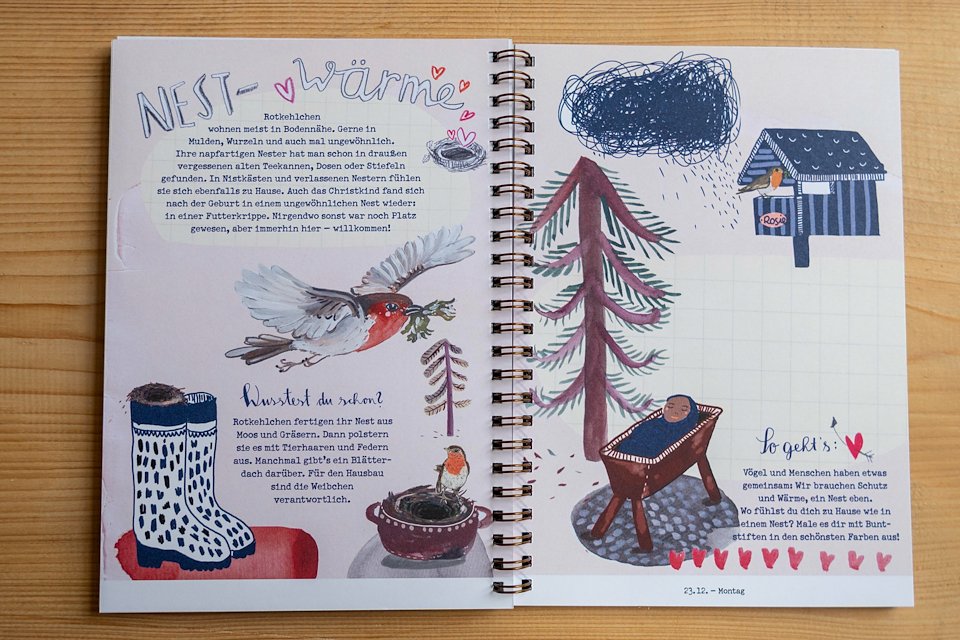 NEST-Wärme
Rotkehlchen
wohnen meist in Bodennähe. Gerne in
Mulden, Wurzeln und auch mal ungewöhnlich.
Ihre napfartigen Nester hat man schon in draußen
vergessenen alten Teekannen, Dosen oder Stiefeln
gefunden. In Nistkästen und verlassenen Nestern fühlen
sie sich ebenfalls zu Hause. Auch das Christkind fand sich
nach der Geburt in einem ungewöhnlichen Nest wieder:
in einer Futterkrippe. Nirgendwo sonst war noch Platz
gewesen, aber immerhin hier – willkommen!
Wusstest du schon?
Rotkehlchen fertigen ihr Nest aus
Moos und Gräsern. Dann polstern
sie es mit Tierhaaren und Federn
aus. Manchmal gibt's ein Blätter-
dach darüber. Für den Hausbau
sind die Weibchen
verantwortlich.
Rosie
So geht's:
Vögel und Menschen haben etwas
gemeinsam: Wir brauchen Schutz
und Wärme, ein Nest eben.
Wo fühlst du dich zu Hause wie in
einem Nest? Male es dir mit Bunt-
stiften in den schönsten Farben aus!
23.12. – Montag